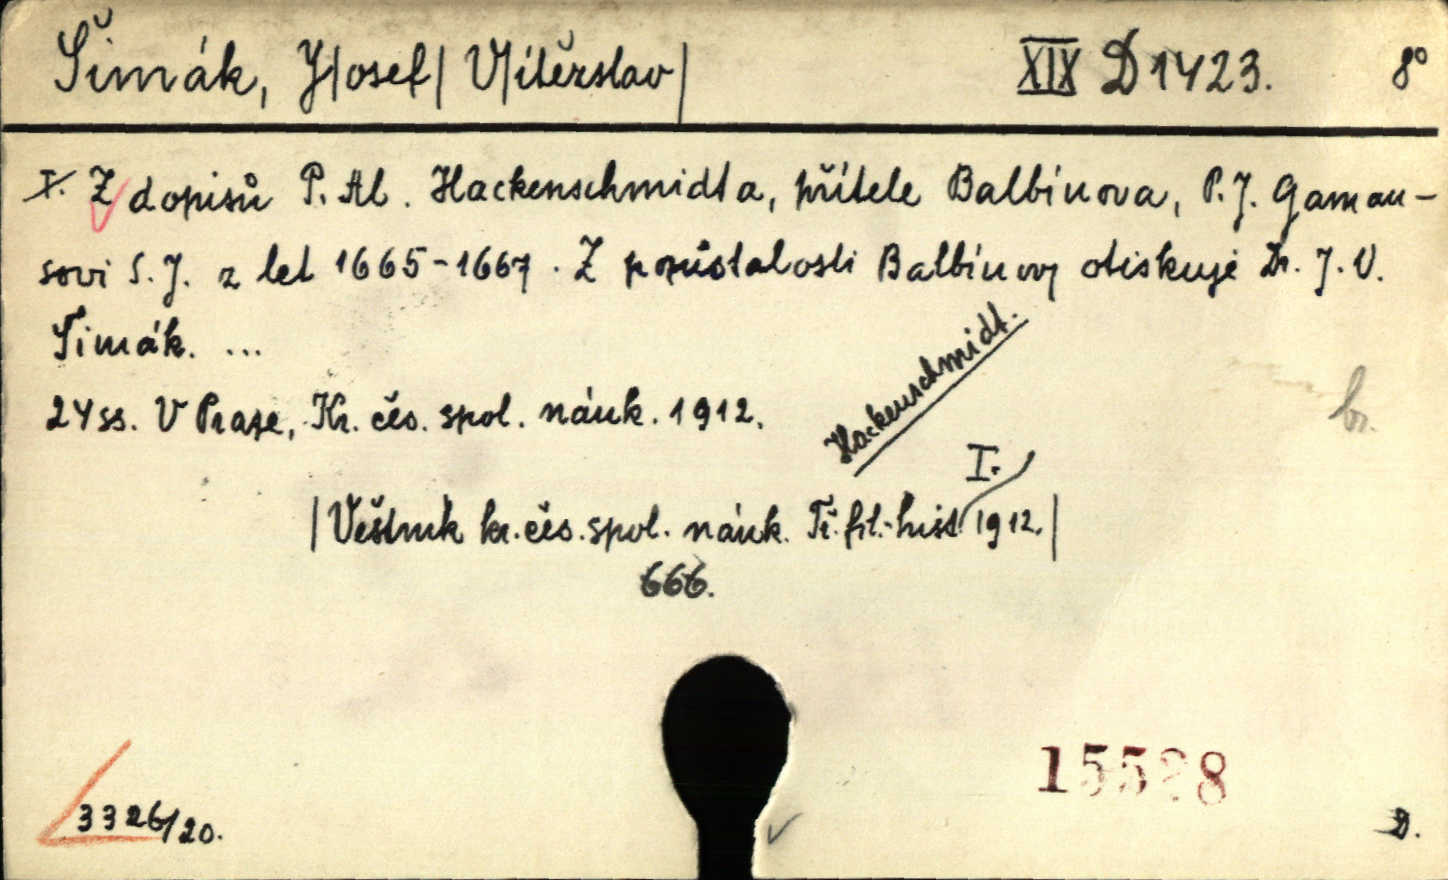 Šimák, J|osef| V|ítězslav|
XIX D 1423. 8°
I. Z dopisů P. Al. Hackenschmidta, přítele Balbínova, P. J. Gaman-
sovi S. J. z let 1665-1667. Z pozůstalosti Balbínovy otiskuje Dr. J. V.
Šimák. ...
24 ss. V Praze, Kr. čes. spol. náuk. 1912.
Hackenschmidt.
br.
I.
|Věstník kr. čes. spol. náuk. Tř. fil.-hist. 1912.|
666.
15528
3326/20.
D.